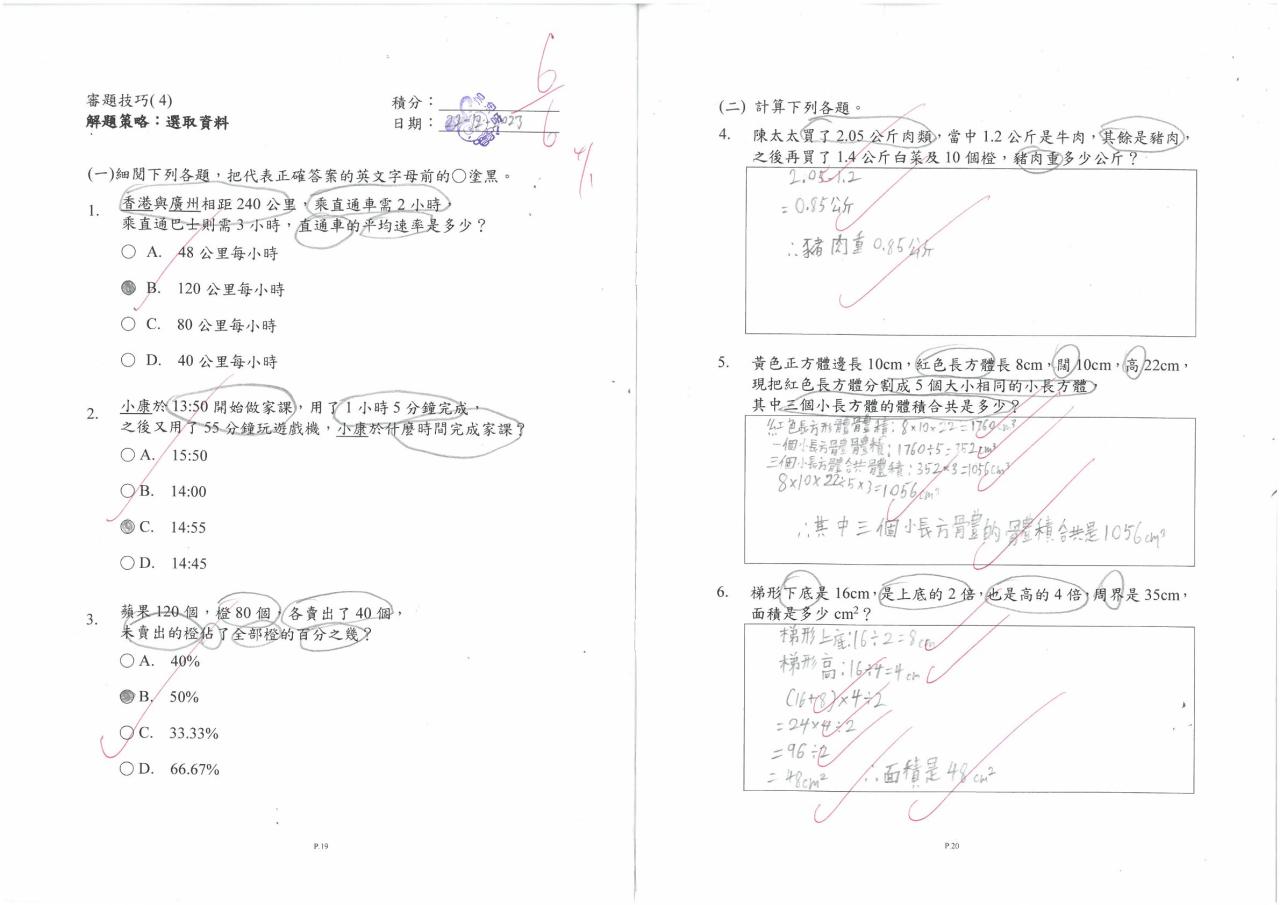 審題技巧( 4)
解題策略：選取資料
積分：
6
6
日期：
22-12-2023
4/1
(一)細閱下列各題，把代表正確答案的英文字母前的○塗黑。
1. 香港與廣州相距 240 公里，乘直通車需 2 小時，
乘直通巴士則需 3 小時，直通車的平均速率是多少？
A. 48 公里每小時
B. 120 公里每小時
C. 80 公里每小時
D. 40 公里每小時
2. 小康於 13:50 開始做家課，用了 1 小時 5 分鐘完成，
之後又用了 55 分鐘玩遊戲機，小康於什麼時間完成家課？
A. 15:50
B. 14:00
C. 14:55
D. 14:45
3. 蘋果 120 個，橙 80 個，各賣出了 40 個，
未賣出的橙佔了全部橙的百分之幾？
A. 40%
B. 50%
C. 33.33%
D. 66.67%
P.19
(二) 計算下列各題。
4. 陳太太買了 2.05 公斤肉類，當中 1.2 公斤是牛肉，其餘是豬肉，
之後再買了 1.4 公斤白菜及 10 個橙，豬肉重多少公斤？
2.05-1.2
=0.85公斤
∴豬肉重0.85公斤
5. 黃色正方體邊長 10cm，紅色長方體長 8cm，闊 10cm，高 22cm，
現把紅色長方體分割成 5 個大小相同的小長方體，
其中三個小長方體的體積合共是多少？
紅色長方形體體積：8×10×22=1760cm³
一個小長方體體積：1760÷5=352cm³
三個小長方體合共體積：352×3=1056cm³
8×10×22÷5×3=1056cm³
∴其中三個小長方體的體積合共是1056cm³
6. 梯形下底是 16cm，是上底的 2 倍，也是高的 4 倍，周界是 35cm，
面積是多少 cm²？
梯形上底：16÷2=8cm
梯形高：16÷4=4cm
(16+8)×4÷2
=24×4÷2
=96÷2
=48cm² ∴面積是48cm²
P.20